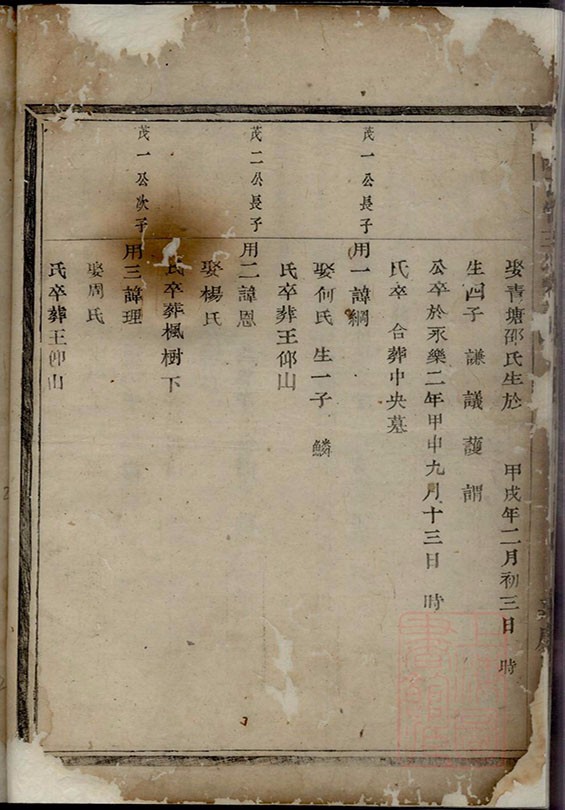 娶青塘邵氏生於 甲戌年二月初三日 時
生四子 謙 議 護 謂
公卒於永樂二年甲申九月十三日 時
氏卒 合葬中央墓
茂一公長子
用一諱綱
娶何氏 生一子 鱗
氏卒葬王仰山
茂二公長子
用二諱恩
娶楊氏
氏卒葬楓樹下
茂一公次子
用三諱理
娶周氏
氏卒葬王仰山